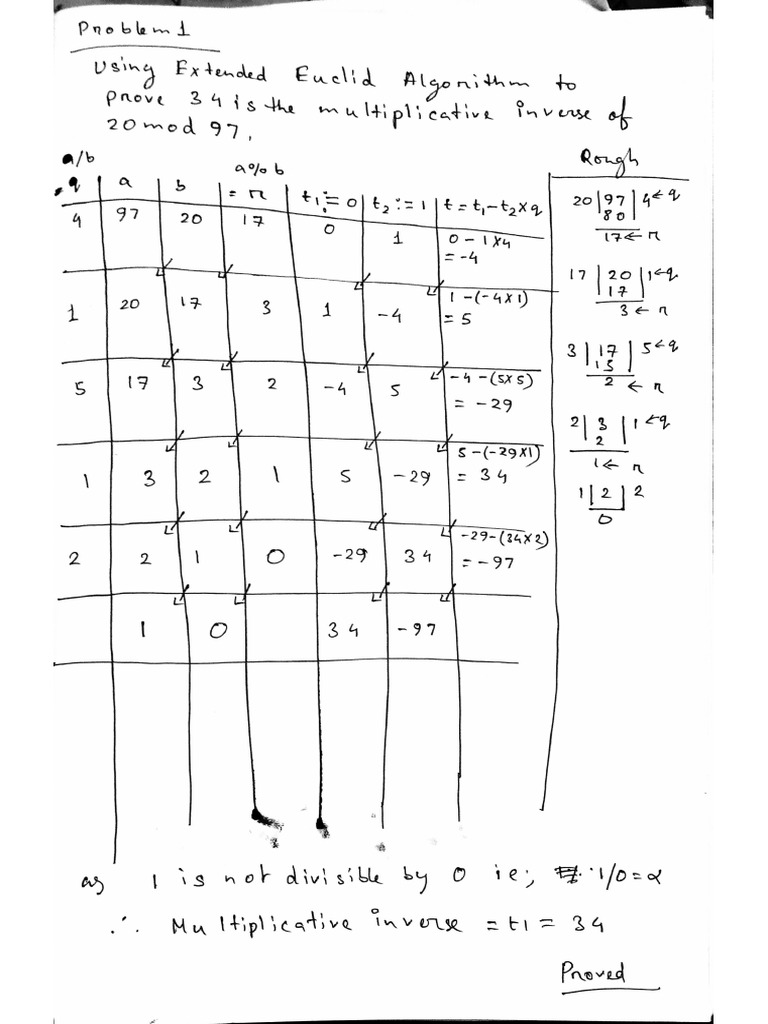 Problem 1
Using Extended Euclid Algorithm to
prove 34 is the multiplicative inverse of
20 mod 97.
a/b a%b Rough
q a b = r t1 := 0 t2 := 1 t = t1 - t2 x q
4 97 20 17 0 1 0 - 1 x 4
= -4
1 20 17 3 1 -4 1 - (-4 x 1)
= 5
5 17 3 2 -4 5 -4 - (5 x 5)
= -29
1 3 2 1 5 -29 5 - (-29 x 1)
= 34
2 2 1 0 -29 34 -29 - (34 x 2)
= -97
1 0 34 -97
20 | 97 | 4 ← q
80
17 ← r
17 | 20 | 1 ← q
17
3 ← r
3 | 17 | 5 ← q
15
2 ← r
2 | 3 | 1 ← q
2
1 ← r
1 | 2 | 2
0
as 1 is not divisible by 0 ie; 1/0 = α
∴ Multiplicative inverse = t1 = 34
Proved